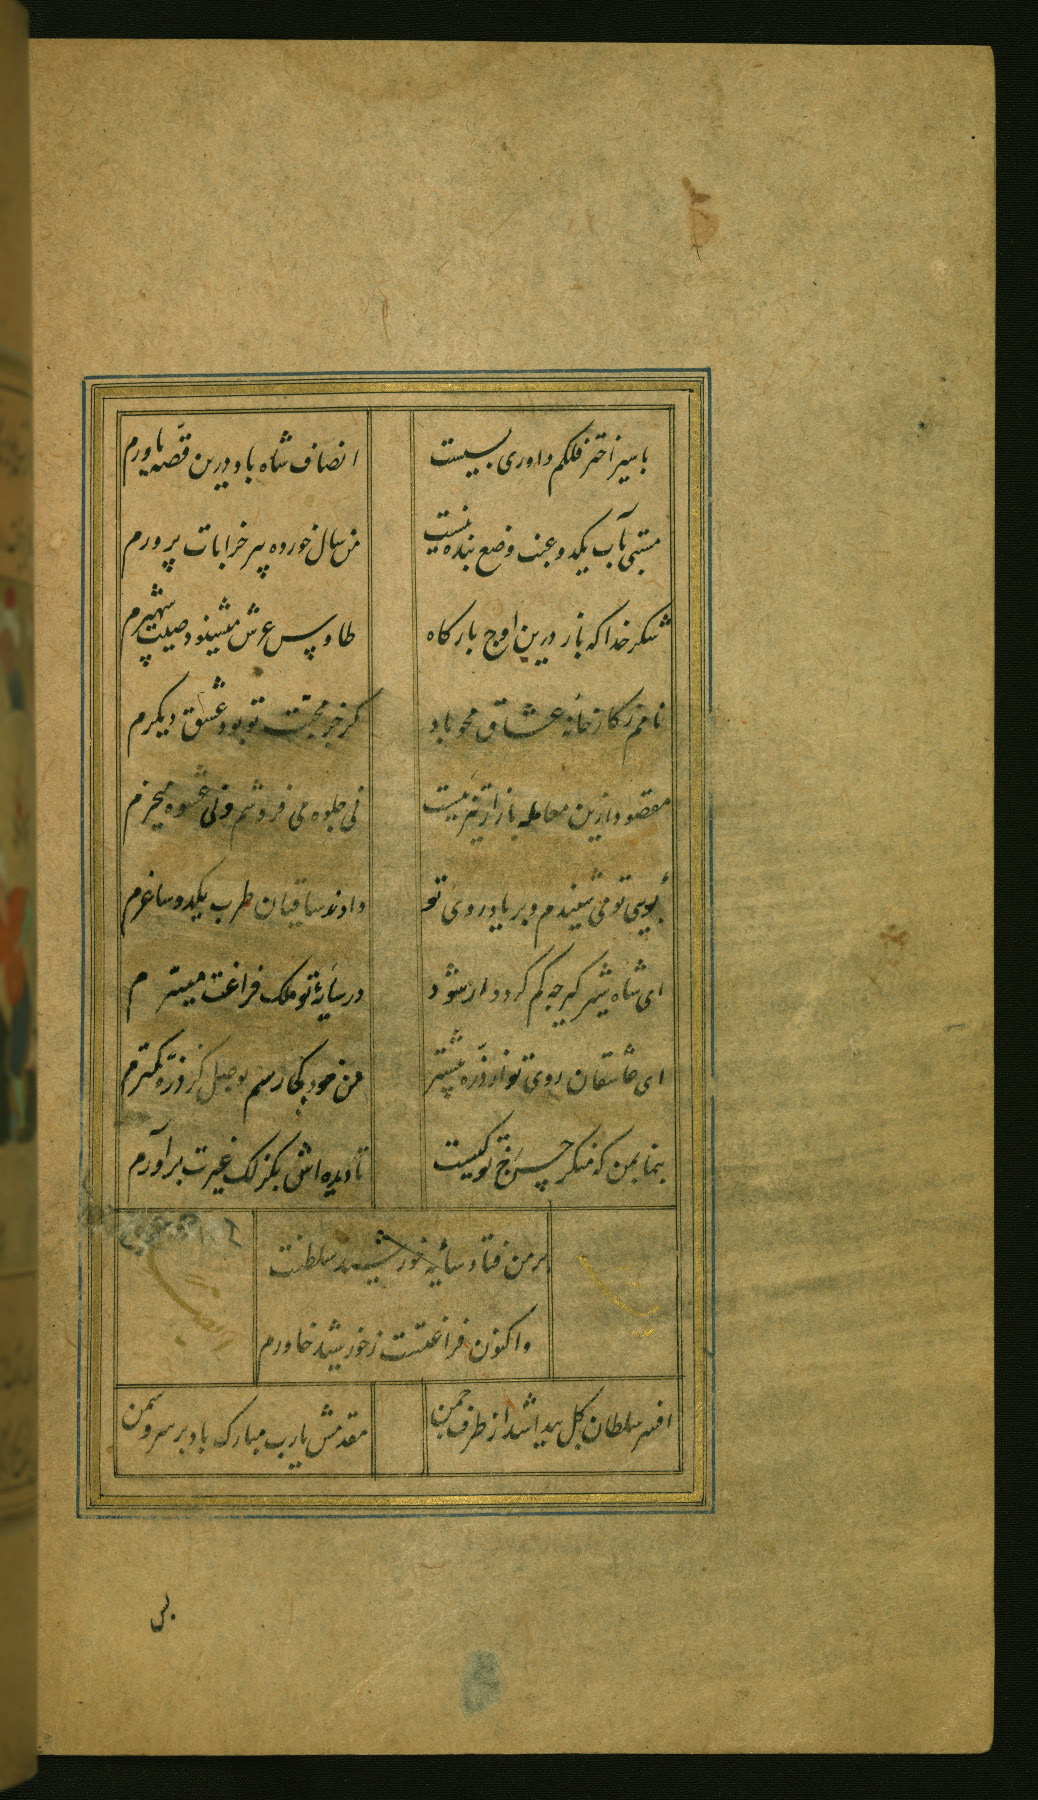 با سیر اختر فلکم داوری بسیست
انصاف شاه باد درین قصه یاورم
مستی بآب یکدو عنب وضع بنده نیست
من سال خورده پیر خرابات پرورم
شکر خدا که باز درین اوج بارگاه
طاوس عرش میشنود صیت شهپرم
نامم ز کارخانهٔ عشاق محو باد
گر جز محبت تو بود عشق دیگرم
مقصود ازین معامله بازار تیزیست
نی جلوه می فروشم ونی عشوه میخرم
بوی تو می شنیدم و بر یاد روی تو
دادند ساقیان طرب یکدو ساغرم
ای شاه شیر گیر چه کم گردد ار شود
در سایهٔ تو ملک فراغت میسرم
ای عاشقان روی تو از ذره بیشتر
من خود کجا رسم بوصل کز ذره کمترم
بنما بمن که منکر حسن رخ تو کیست
تا دیده اش بگزلک غیرت برآورم
بر من فتاد سایهٔ خورشید سلطنت
واکنون فراغتست ز خورشید خاورم
افسر سلطان گل پیدا شد از طرف چمن
مقدمش یارب مبارک باد بر سرو سمن